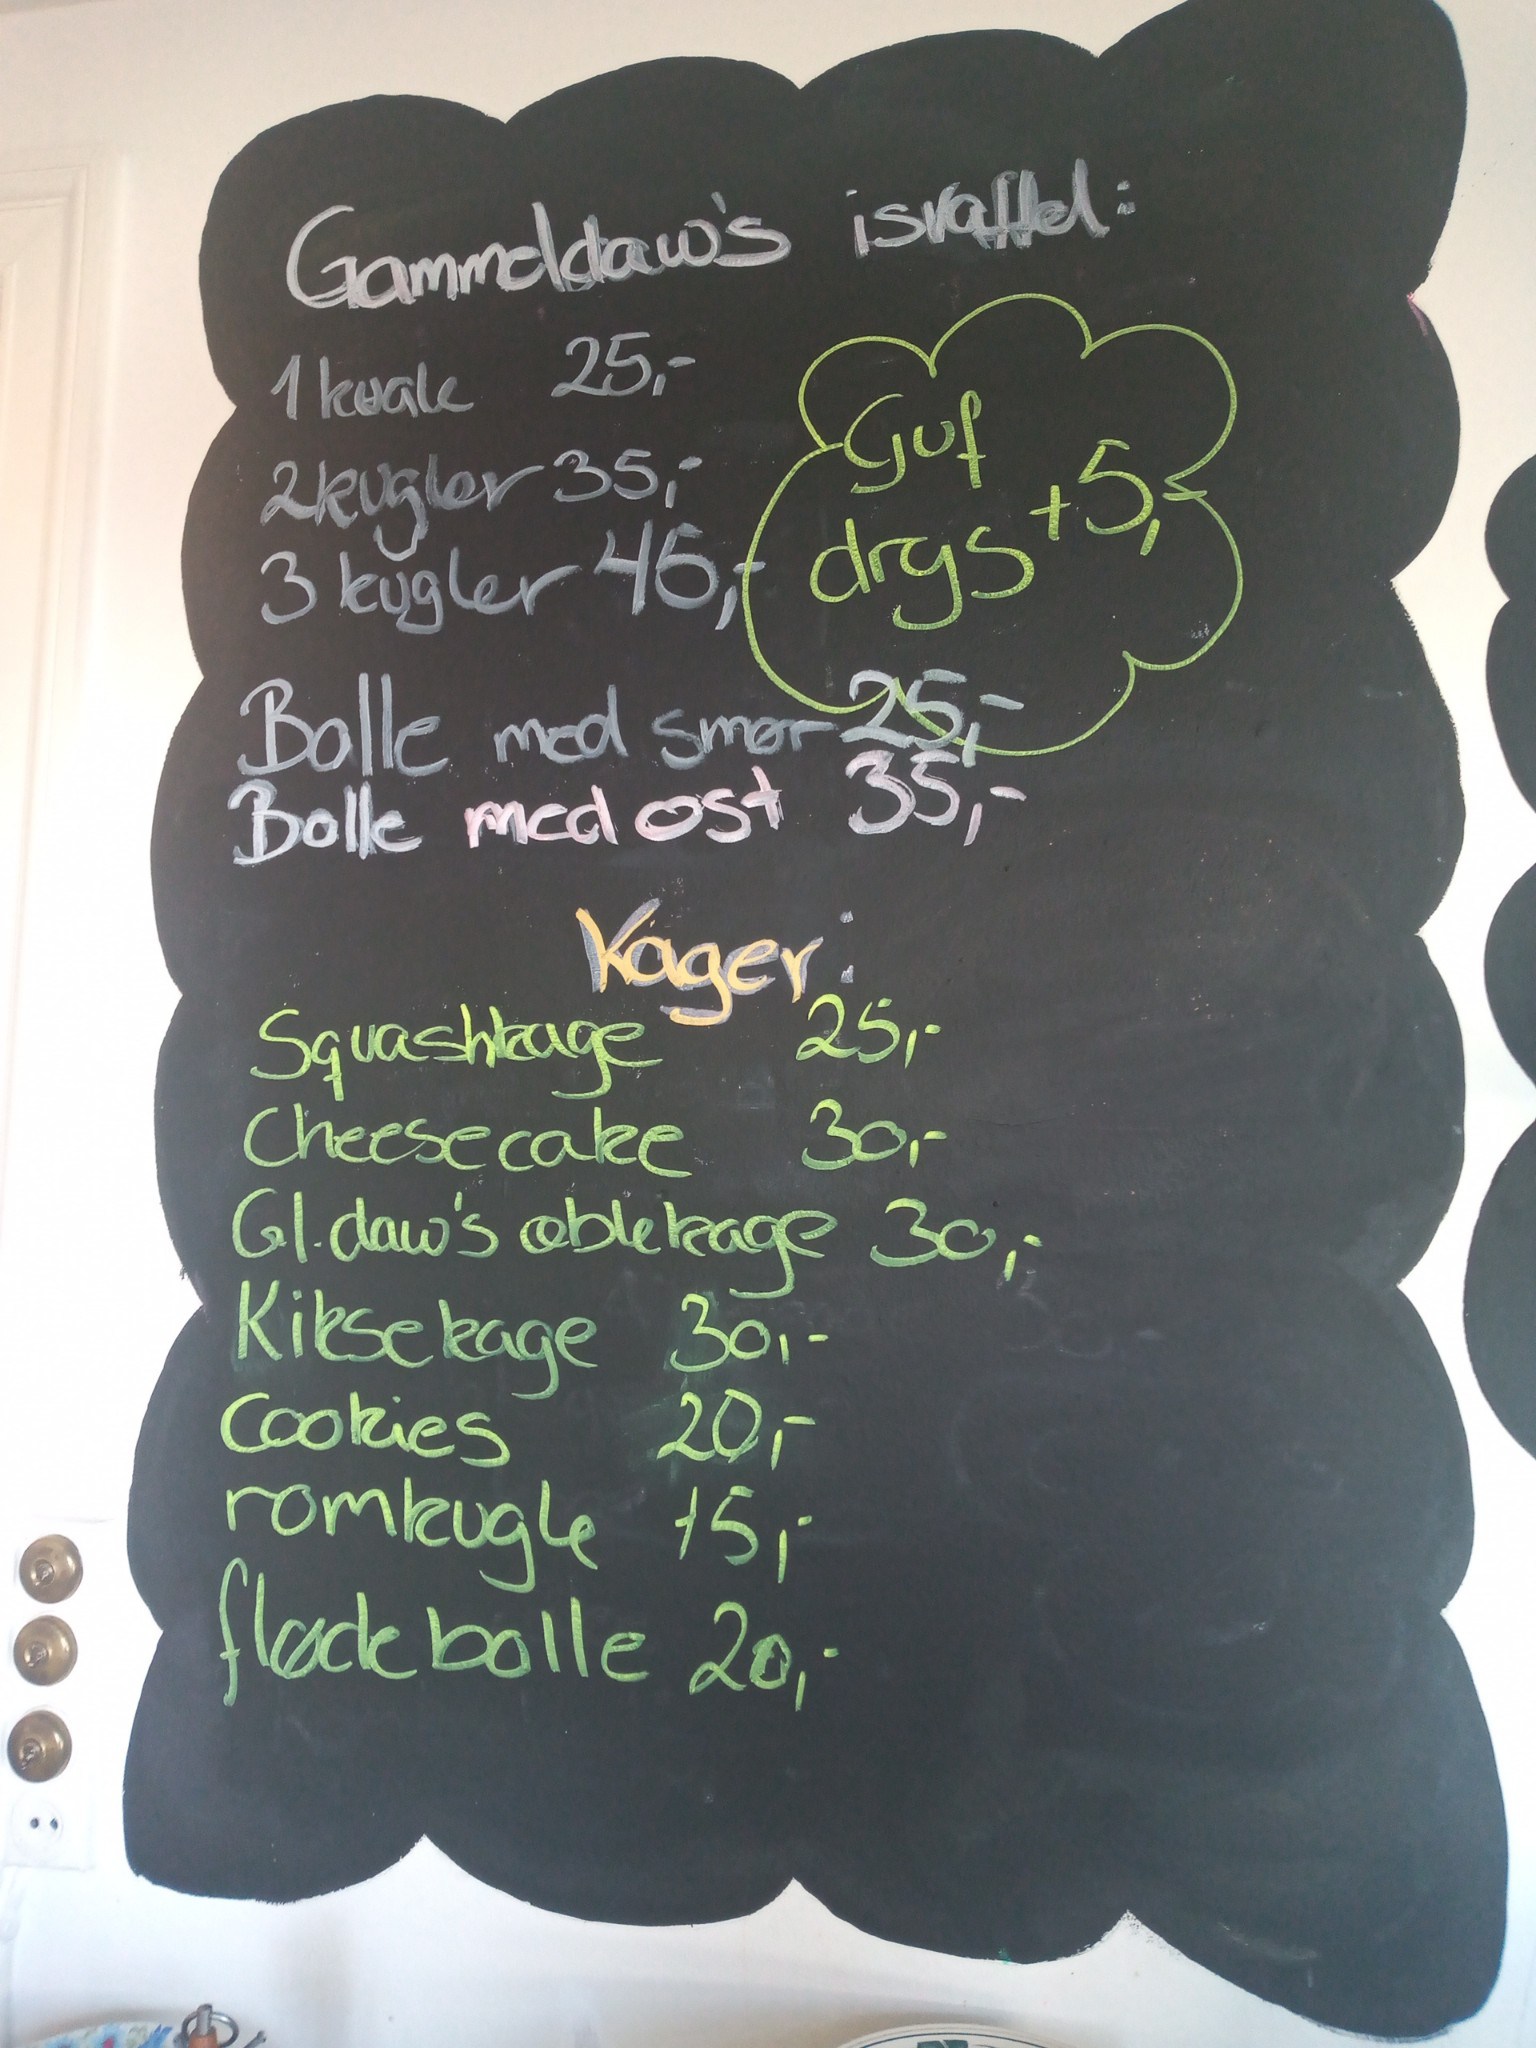 Gammeldaw's isvaffel:
1 kugle 25,-
2 kugler 35,-
3 kugler 45,-
Guf
drys +5,-
Bolle med smør 25,-
Bolle med ost 35,-
Kager:
Squashkage 25,-
Cheesecake 30,-
Gl.daw's æblekage 30,-
Kiksekage 30,-
cookies 20,-
romkugle 15,-
flødebolle 20,-